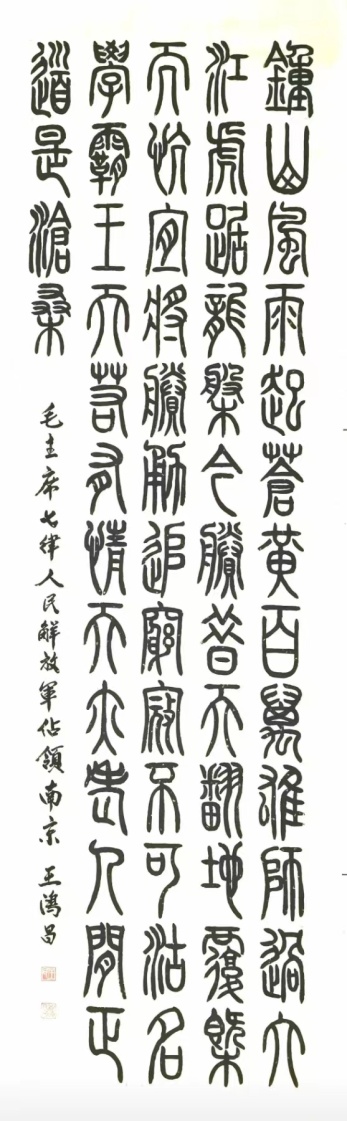 鐘山風雨起蒼黃百萬雄師過大
江虎踞龍槃今勝昔天翻地覆槩
而忼宜將賸勇追窮寇不可沽名
學霸王天若有情天亦老人間正
道是滄桑
毛主席七律人民解放軍佔領南京 王鴻昌